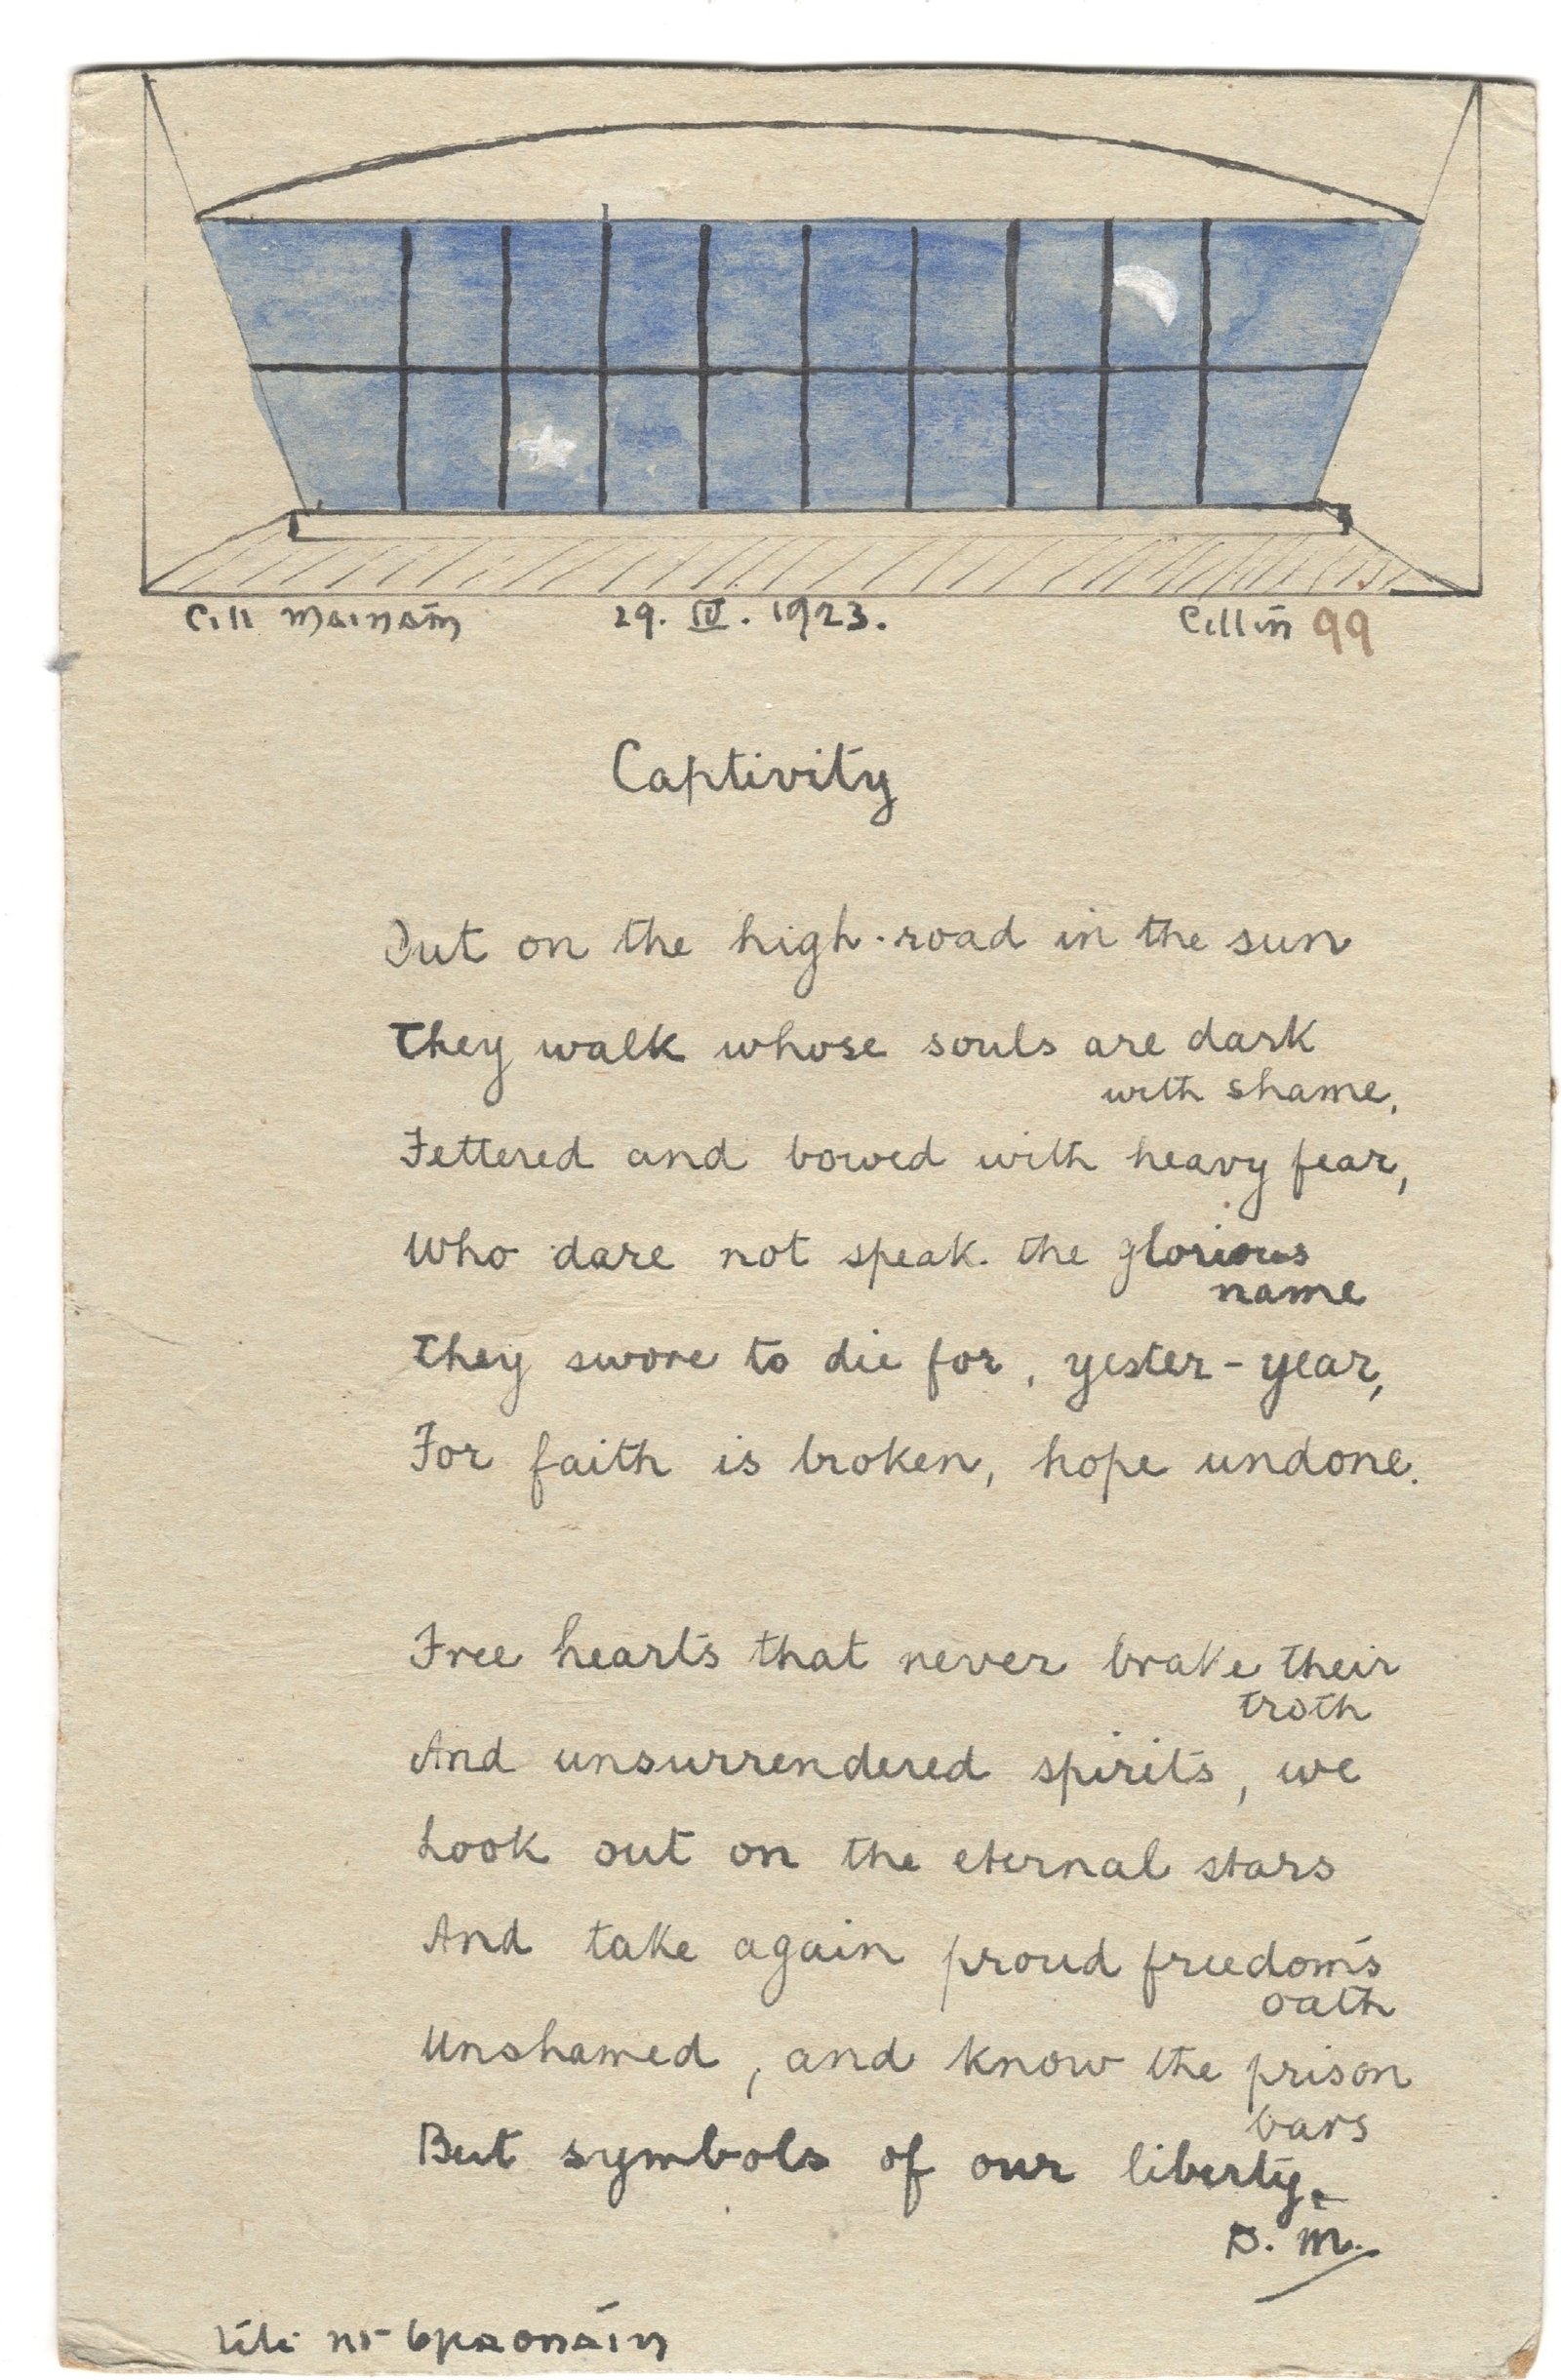 Cill
29. IV. 1923.
Cillín 99
Captivity
Out on the high-road in the sun
They walk whose souls are dark
with shame,
Fettered and bowed with heavy fear,
Who dare not speak the glorious
name
They swore to die for, yester-year,
For faith is broken, hope undone.
Free hearts that never brake their
troth
And unsurrendered spirits, we
Look out on the eternal stars
And take again proud freedom's
oath
Unshamed, and know the prison
bars
But symbols of our liberty.
D. M.
Lílí ní braonáin